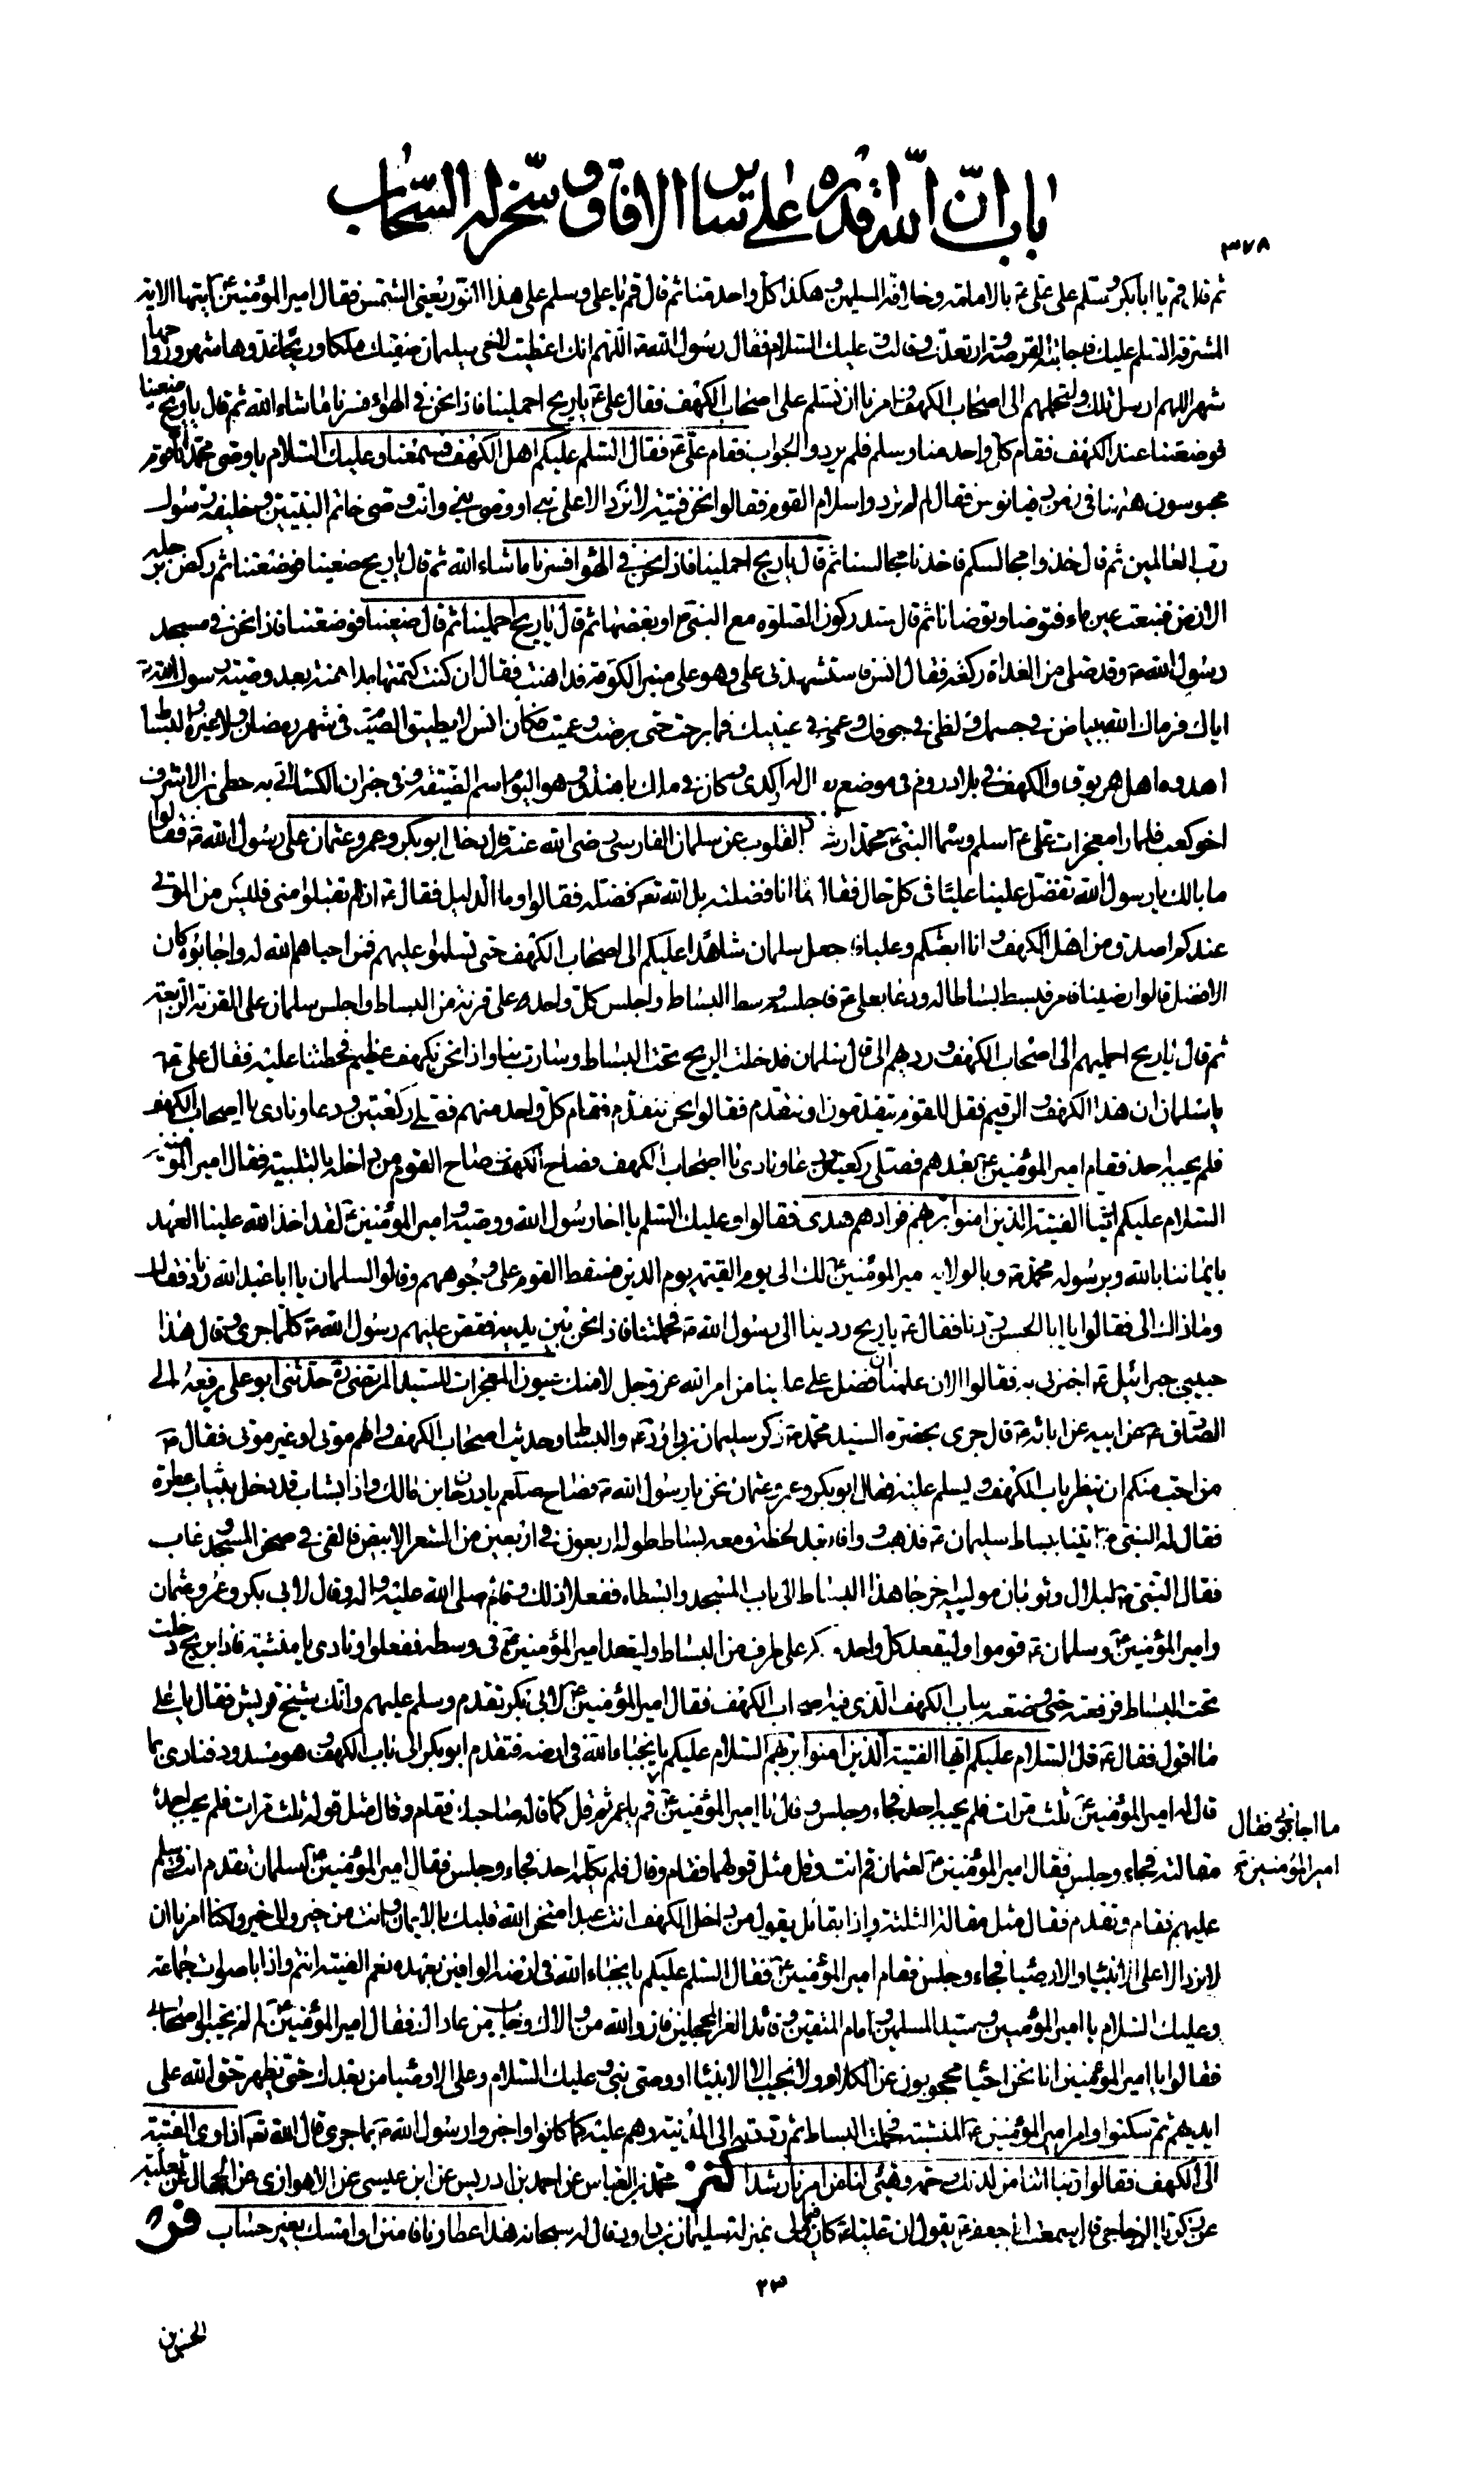 باب انّ الله اقدره على سير الافاق و سخّر له السّحاب
٣٧٨
ثم قال قم يا ابابكر و سلم على على ع بالامامة و خلافة المسلمين و هكذا كل واحد منا ثم قال قم يا على و سلم على هذا النور يعنى الشمس فقال امير المؤمنين ع ايتها الاية
المشرقة السلم عليك فاجابت القرصة و ارتعدت و قالت و عليك السلام فقال رسول الله ص اللهم انك اعطيت لاخى سليمان صفيك ملكا و ريحا غدوها شهر و رواحها
شهر اللهم ارسل تلك و لتحملهم الى اصحاب الكهف و امرنا ان نسلم على اصحاب الكهف فقال على ع يا ريح احملينا فاذا نحن فى الهواء فسرنا ما شاء الله ثم قال يا ريح ضعينا
فوضعتنا عند الكهف فقام كل واحد منا و سلم فلم يردوا الجواب فقام على ع فقال السلم عليكم اهل الكهف فسمعنا و عليك السلام يا وصى محمد انا قوم
محبوسون ههنا فى زمن دقيانوس فقال لم لم تردوا سلام القوم فقالوا نحن فتية لا نرد الا على نبى او وصى نبى و انت وصى خاتم النبيين و خليفة رسول
رب العالمين ثم قال خذوا مجالسكم فاخذنا مجالسنا ثم قال يا ريح احملينا فاذا نحن فى الهوا فسرنا ما شاء الله ثم قال يا ريح ضعينا فوضعتنا ثم ركض برجله
الارض فنبعت عين ماء فتوضا و توضانا ثم قال ستدركون الصلوة مع النبى ص او بعضها ثم قال يا ريح احملينا ثم قال ضعينا فوضعتنا فاذا نحن فى مسجد
رسول الله ص و قد صلى من الغداة ركعة فقال انس فاستشهدنى على و هو على منبر الكوفة فداهنت فقال ان كنت كتمتها مداهنة بعد وصية رسول الله ص
اياك فرماك الله ببياض فى جسمك و لظى فى جوفك و عمى فى عينيك فما برحت حتى برصت و عميت فكان انس لا يطيق الصيام فى شهر رمضان و لا غيره و البساط
اهدوه اهل هربوق و الكهف فى بلاد روم فى موضع يقال له اركدى و كان فى ملك باهندق و هو اليوم اسم الضيعة و فى خبر ان الكساء اتى به حطى بن الاشرف
اخو كعب فلما راى معجزات على ع اسلم و سماه النبى ص محمدا ارشاد القلوب عن سلمان الفارسى رضى الله عنه قال دخل ابو بكر و عمر و عثمان على رسول الله ص فقالوا
ما بالك يا رسول الله تفضل علينا عليا فى كل حال فقال ما انا فضلته بل الله تعه فضله فقالوا و ما الدليل فقال ع اذا لم تقبلوا منى فليس من الموتى
عندكم اصدق من اهل الكهف و انا ابعثكم و عليا و اجعل سلمان شاهدا عليكم الى اصحاب الكهف حتى تسلموا عليهم فمن احياهم الله له و اجابوه كان
الافضل قالوا رضينا فامر فبسط بساط له و دعا بعلى ع فاجلسه وسط البساط و اجلس كل واحد على قرنة من البساط و اجلس سلمان على القرنة الرابعة
ثم قال يا ريح احمليهم الى اصحاب الكهف و رديهم الى قال سلمان فدخلت الريح تحت البساط و سارت بنا و اذا نحن بكهف عظيم فحطتنا عليه فقال على ع
يا سلمان ان هذا الكهف و الرقيم فقل للقوم يتقدمون او نتقدم فقالوا نحن نتقدم فقام كل واحد منهم فصلى ركعتين و دعا و نادى يا اصحاب الكهف
فلم يجبه احد فقام امير المؤمنين ع بعدهم فصلى ركعتين و دعا و نادى يا اصحاب الكهف فصاح الكهف و صاح القوم من داخله بالتلبية فقال امير المؤمنين
السلام عليكم ايها الفتية الذين امنوا بربهم فزادهم هدى فقالوا و عليك السلم يا اخا رسول الله و وصيه و امير المؤمنين لقد اخذ الله علينا العهد
بايماننا بالله و برسوله محمد ص و بالولاية يا امير المؤمنين لك الى يوم القيمة يوم الدين فسقط القوم على وجوههم و قالوا لسلمان يا ابا عبد الله ردنا فقال
و ما ذاك الى فقالوا يا ابا الحسن ردنا فقال ع يا ريح ردينا الى رسول الله ص فحملتنا فاذا نحن بين يديه فقص عليهم رسول الله ص كلما جرى و قال هذا
حبيبى جبرائيل ع اخبرنى به فقالوا الان علمنا ان فضل على علينا من امر الله عز و جل لا منك عيون المعجزات للسيد المرتضى ره حدثنى ابو على يرفعه الى
الصادق ع عن ابيه عن ابائه ع قال جرى بحضرة السيد محمد ص ذكر سليمان بن داود ع و البساط و حديث اصحاب الكهف و انهم موتى او غير موتى فقال ص
من احب منكم ان ينظر باب الكهف و يسلم عليهم فقال ابو بكر و عمر و عثمان نحن يا رسول الله ص فصاح صلعم يا درجان بن مالك و اذا بشاب قد دخل بثياب عطرة
فقال له النبى ص ائتنا ببساط سليمان ع فذهب و وافى بعد لحظة و معه بساط طوله اربعون فى اربعين من الشعر الابيض فالقى فى صحن المسجد و غاب
فقال النبى ص لبلال و ثوبان موليه اخرجا هذا البساط الى باب المسجد و ابسطاه ففعلا ذلك و قام صلى الله عليه و اله و قال لابى بكر و عمر و عثمان
و امير المؤمنين ع و سلمان ع قوموا و ليقعد كل واحد منكم على طرف من البساط و ليقعد امير المؤمنين ع فى وسطه ففعلوا و نادى يا منشبة فاذا بريح دخلت
تحت البساط فرفعته حتى وضعته بباب الكهف الذى فيه اصحاب الكهف فقال امير المؤمنين ع لابى بكر تقدم و سلم عليهم و انك شيخ قريش فقال يا على
ما اقول فقال ع قل السلام عليكم ايها الفتية الذين امنوا بربهم السلام عليكم يا نجباء الله فى ارضه فتقدم ابو بكر الى باب الكهف و هو مسدود فنادى بما
قال له امير المؤمنين ع ثلث مرات فلم يجبه احد فجاء و جلس و قال يا امير المؤمنين ع قم يا عمر ثم قل كما قاله صاحبك فقام و قال مثل قوله ثلث مرات فلم يجب احد
ما اجابونى فقال
امير المؤمنين ع
مقالته فجاء و جلس فقال امير المؤمنين ع لعثمان قم انت و قل مثل قولهما فقام و قال فلم يكلمه احد فجاء و جلس فقال امير المؤمنين ع لسلمان تقدم انت و سلم
عليهم فقام و تقدم فقال مثل مقالة الثلثة و اذا بقائل يقول من داخل الكهف انت عبد امتحن الله قلبك بالايمان و انت من خير و الى خير و لكنا امرنا ان
لا نرد الا على الانبياء و الاوصياء فجاء و جلس فقام امير المؤمنين ع فقال السلم عليكم يا نجباء الله فى ارضه الوافين بعهده نعم الفتية انتم و اذا باصوات جماعة
و عليك السلام يا امير المؤمنين و سيد المسلمين و امام المتقين و قائد الغر المحجلين فاز و الله من والاك و خاب من عاداك فقال امير المؤمنين ع لم لم تجيبوا اصحابى
فقالوا يا امير المؤمنين انا نحن احياء محجوبون عن الكلام و لا نجيب الا الانبياء او وصى نبى و عليك السلام و على الاوصياء من بعدك حتى يظهر حق الله على
ايديهم ثم سكتوا و امر امير المؤمنين ع المنشبة فحملت البساط ثم ردته الى المدينة و هم عليه كما كانوا و اخبروا رسول الله ص بما جرى قال الله تعه اذ اوى الفتية
الى الكهف فقالوا ربنا اتنا من لدنك رحمة و هيئ لنا من امرنا رشدا كنز محمد بن العباس عن احمد بن ادريس عن ابن عيسى عن الاهوازى عن الجمال عن ثعلبة
عن زكريا الزجاجى قال سمعت ابا جعفر ع يقول ان عليا ع كان فيما ولى بمنزلة سليمان بن داود قال له سبحانه هذا عطاؤنا فامنن او امسك بغير حساب فر
٢٣
الحسن بن